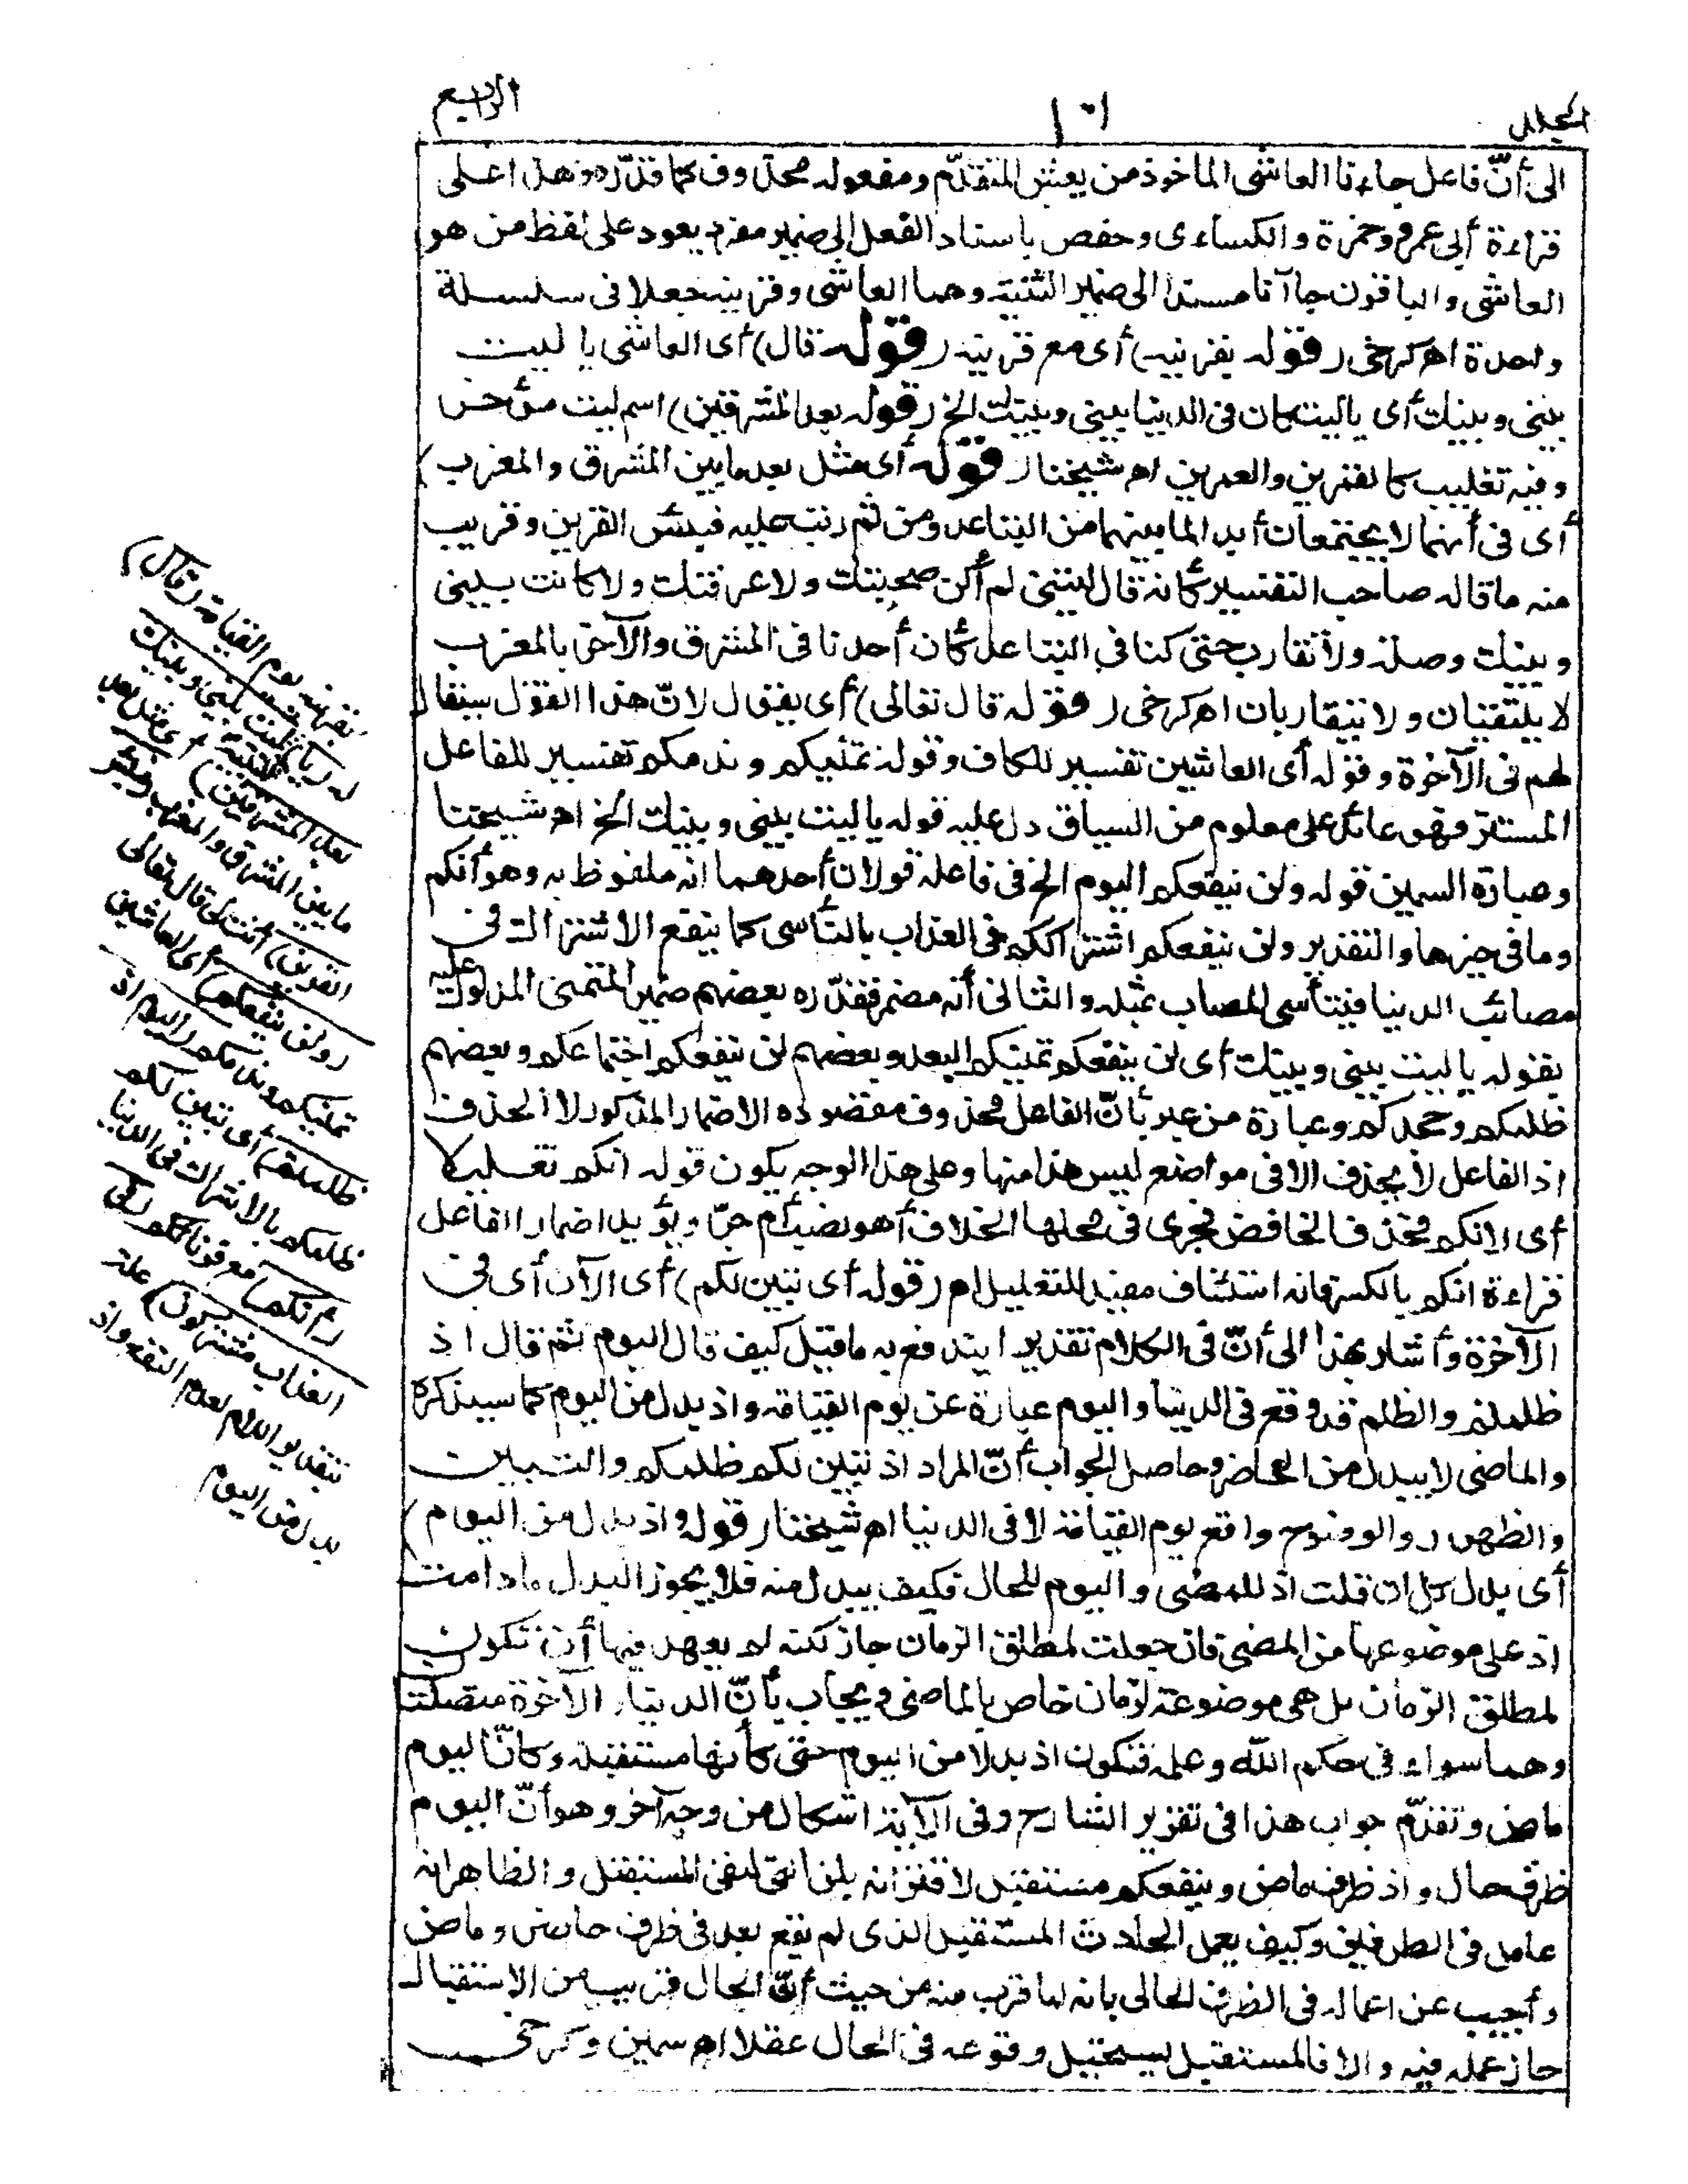 المجلد
١٠١
الرابع
الى أنّ فاعل جاءنا العاشى المأخوذ من يعش المتقدّم ومفعوله محذوف كما قدّره وهذا على
قراءة أبى عمرو وحمزة والكساءى وحفص باسناد الفعل الى ضمير مفرد يعود على لفظ من هو
العاشى والباقون جاآنا مسندا الى ضمير التثنية وهما العاشى وقرينه جعلا فى سلسلة
واحدة اهـ كرخى (قوله بقرنيه) أى مع قرينه (قوله قال) أى العاشى يا ليت
بينى وبينك أى ياليت كان فى الدنيا بينى وبينك الخ (قوله بعد المشرقين) اسم ليت مؤخر
وفيه تغليب كالقمرين والعمرين اهـ شيخنا (قوله أى مثل بعد ما بين المشرق والمغرب)
أى فى أنهما لا يجتمعان أبدا لما بينهما من التباعد ومن ثم رتب عليه فبئس القرين وقريب
منه ما قاله صاحب التفسير كأنه قال ليتنى لم أكن صحبتك ولا عرفتك ولا كانت بينى
وبينك وصلة ولا تقارب حتى كنا فى التباعد كأن أحدنا فى المشرق والآخر بالمغرب
لا يلتقيان ولا يتقاربان اهـ كرخى (قوله قال تعالى) أى يقول لانّ هذا القول سيقال
لهم فى الآخرة وقوله أى العاشين تفسير للكاف وقوله تمنيكم وندمكم تفسير للفاعل
المستتر فهو عائد على معلوم من السياق دل عليه قوله ياليت بينى وبينك الخ اهـ شيخنا
وعبارة السمين قوله ولن ينفعكم اليوم الخ فى فاعله قولان أحدهما انه ملفوظ به وهو أنكم
وما فى حيزها والتقدير ولن ينفعكم اشتراككم فى العذاب بالتأسى كما ينفع الاشتراك فى
مصائب الدنيا فيتأسى المصاب بمثله والثانى أنه مضمر فقدّره بعضهم ضمير التمنى المدلول عليه
بقوله ياليت بينى وبينك أى لن ينفعكم تمنيكم البعد وبعضهم لن ينفعكم اجتماعكم وبعضهم
ظلمكم وجحدكم وعبارة من عبر بأنّ الفاعل محذوف مقصوده الاضمار المذكور لا الحذف
اذ الفاعل لا يحذف الا فى مواضع ليس هذا منها وعلى هذا الوجه يكون قوله انكم تعليلا
أى لانكم فحذف الخافض فجرى فى محلها الخلاف أهو نصب أم جرّ ويؤيد اضمار الفاعل
قراءة انكم بالكسر فانه استئناف مفيد للتعليل اهـ (قوله أى تبين لكم) أى الآن أى فى
الآخرة وأشار بهذا الى أنّ فى الكلام تقديرا يندفع به ما قيل كيف قال اليوم ثم قال اذ
ظلمتم والظلم قد وقع فى الدنيا واليوم عبارة عن يوم القيامة واذ بدل من اليوم كما سيذكره
والماضى لا يبدل من الحاضر وحاصل الجواب أنّ المراد اذ تبين لكم ظلمكم والتبيين
والظهور والوضوح واقع يوم القيامة لا فى الدنيا اهـ شيخنا (قوله واذ بدل من اليوم)
أى بدل كل ان قلت اذ للمضى واليوم للحال فكيف يبدل منه فلا يجوز البدل ما دامت
اذ على موضوعها من المضى فان جعلت لمطلق الزمان جاز لكنه لم يعهد فيها أن تكون
لمطلق الزمان بل هى موضوعة لزمان خاص بالماضى ويجاب بأنّ الدنيا والآخرة متصلتا
وهما سواء فى حكم الله وعلمه فتكون اذ بدلا من اليوم حتى كأنها مستقبلة وكانّ اليوم
ماض وتقدّم جواب هذا فى تقرير الشارح وفى الآية اشكال من وجه آخر وهو أنّ اليوم
ظرف حال واذ ظرف ماض وينفعكم مستقبل لاقترانه بلن التى لنفى المستقبل والظاهر انه
عامل فى الظرفين وكيف يعمل الحادث المستقبل الذى لم يقع بعد فى ظرف حاضر وماض
وأجيب عن اعماله فى الظرف الحالى بانه لما قرب منه من حيث أنّ الحال قريب من الاستقبال
جاز عمله فيه والا فالمستقبل يستحيل وقوعه فى الحال عقلا اهـ سمين وكرخى
بقرينه يوم القيامة (قال)
له (يا) للتنبيه (ليت بينى وبينك
بعد المشرقين) أى مثل بعد
ما بين المشرق والمغرب (فبئس
القرين) أنت لى قال تعالى
(ولن ينفعكم) أى العاشين
تمنيكم وندمكم (اليوم اذ
ظلمتم) أى تبين لكم
ظلمكم بالاشراك فى الدنيا
(أنكم) مع قرنائكم (فى
العذاب مشتركون) علة
بتقدير اللام لعدم النفع واذ
بدل من اليوم